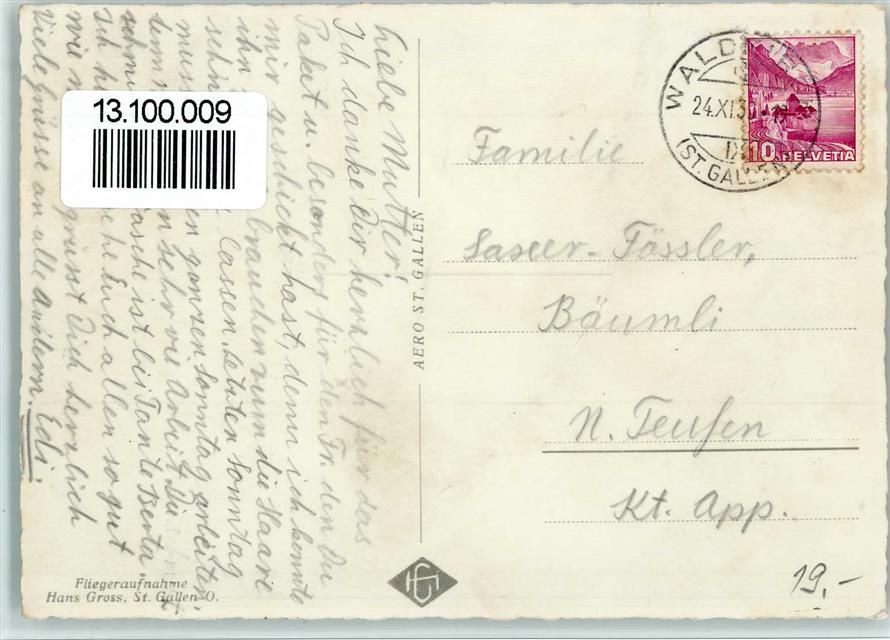 13.100.009
Liebe Mutter!
Ich danke Dir herzlich für das
Paket u. besonders für den Fr. den Du
mir geschickt hast, denn ich konnte
ihn brauchen um die Haare
schn lassen. Letzten Sonntag
muss en ganzen Sonntag arbeiten.
denn n sehr vie Arbeit. Die
schmu asche ist bei Tante Berta.
ich h che Euch allen so gut
wie grüsst Dich herzlich
Viele grüsse an alle Andern. Edi.
AERO ST. GALLEN
Fliegeraufnahme
Hans Gross, St. Gallen-O.
HG
WALD
24.XI.3
IX
(ST. GALLEN)
10 HELVETIA
Familie
Saxer-Fässler,
Bäumli
N. Teufen
Kt. App.
19.-